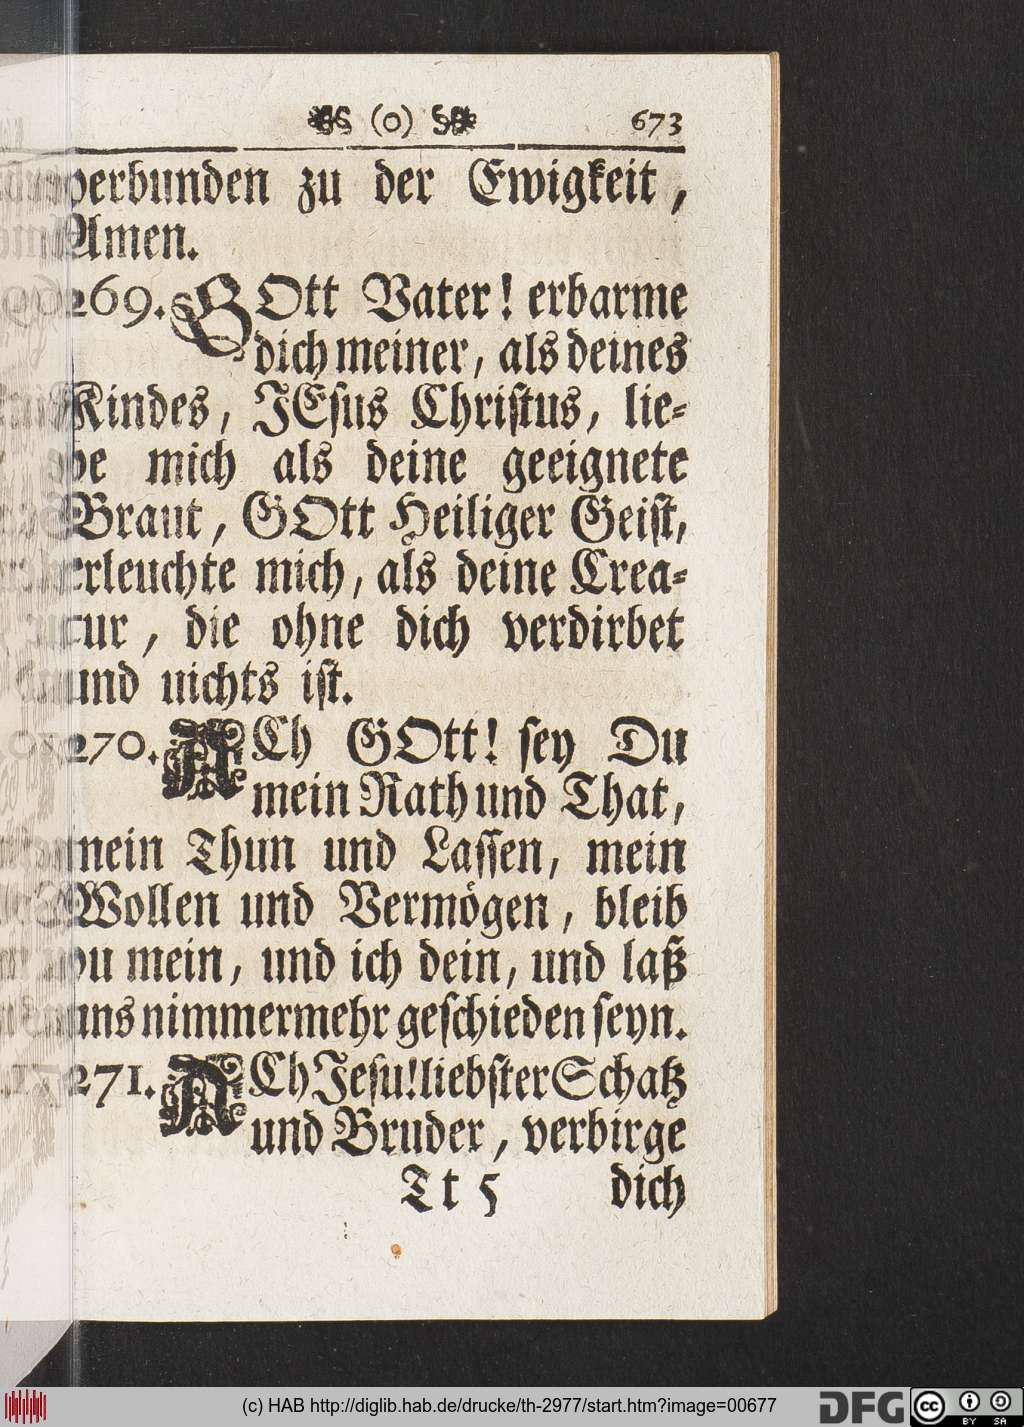 (o) 673
verbunden zu der Ewigkeit,
Amen.
269. GOtt Vater! erbarme
dich meiner, als deines
Kindes, JEsus Christus, lie-
be mich als deine geeignete
Braut, GOtt Heiliger Geist,
erleuchte mich, als deine Crea-
tur, die ohne dich verdirbet
und nichts ist.
270. ACh GOtt! sey Du
mein Rath und That,
mein Thun und Lassen, mein
Wollen und Vermögen, bleib
du mein, und ich dein, und laß
uns nimmermehr geschieden seyn.
271. ACh Jesu! liebster Schatz
und Bruder, verbirge
Tt 5 dich
(c) HAB http://diglib.hab.de/drucke/th-2977/start.htm?image=00677
DFG cc BY SA